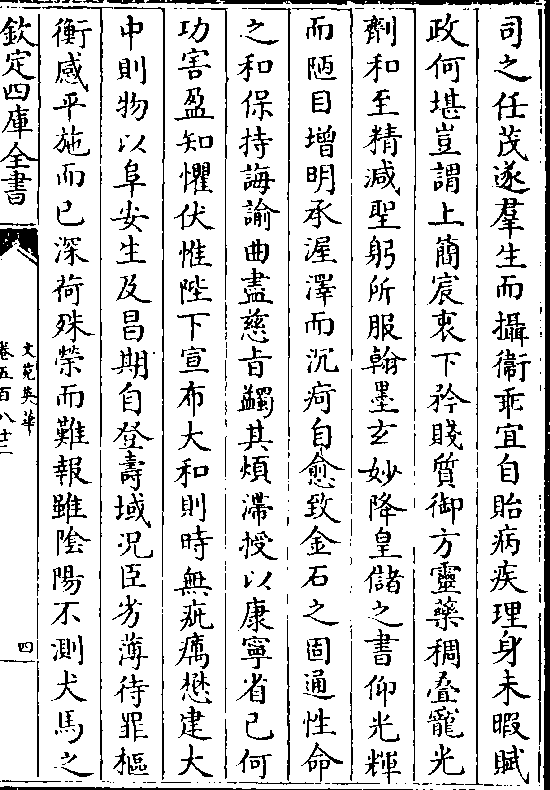 司之任茂遂羣生而攝衞乖宜自貽病疾理身未暇賦
政何堪豈謂上簡宸衷下矜賤質御方靈藥稠疊寵光
劑和至精減聖躬所服翰墨玄妙降皇儲之書仰光輝
而陋目增明承渥澤而沉疴自愈致金石之固通性命
之和保持誨諭曲盡慈旨蠲其煩滯授以康寧省已何
功害盈知懼伏惟陛下宣布大和則時無疵癘懋建大
中則物以阜安生及昌期自登壽域况臣劣薄待罪樞
衡感平施而已深荷殊榮而難報雖陰陽不測犬馬之
欽定四庫全書
文苑英華
卷五百八十二
四